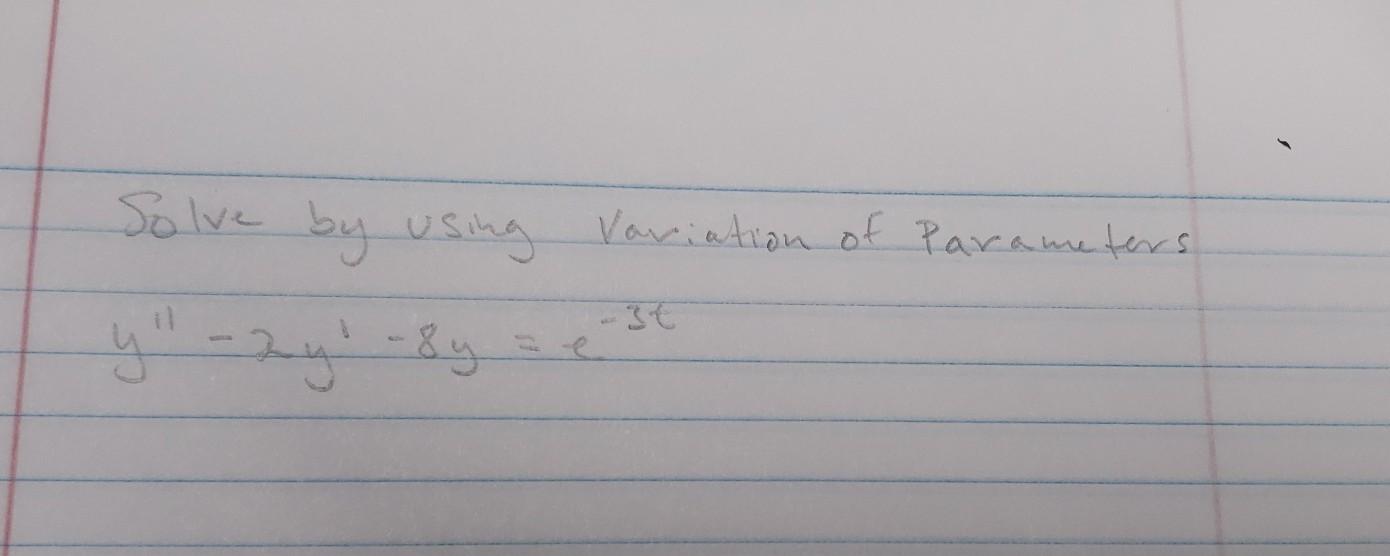 Solve by using Variation of Parameters
y'' - 2y' - 8y = e^-3t